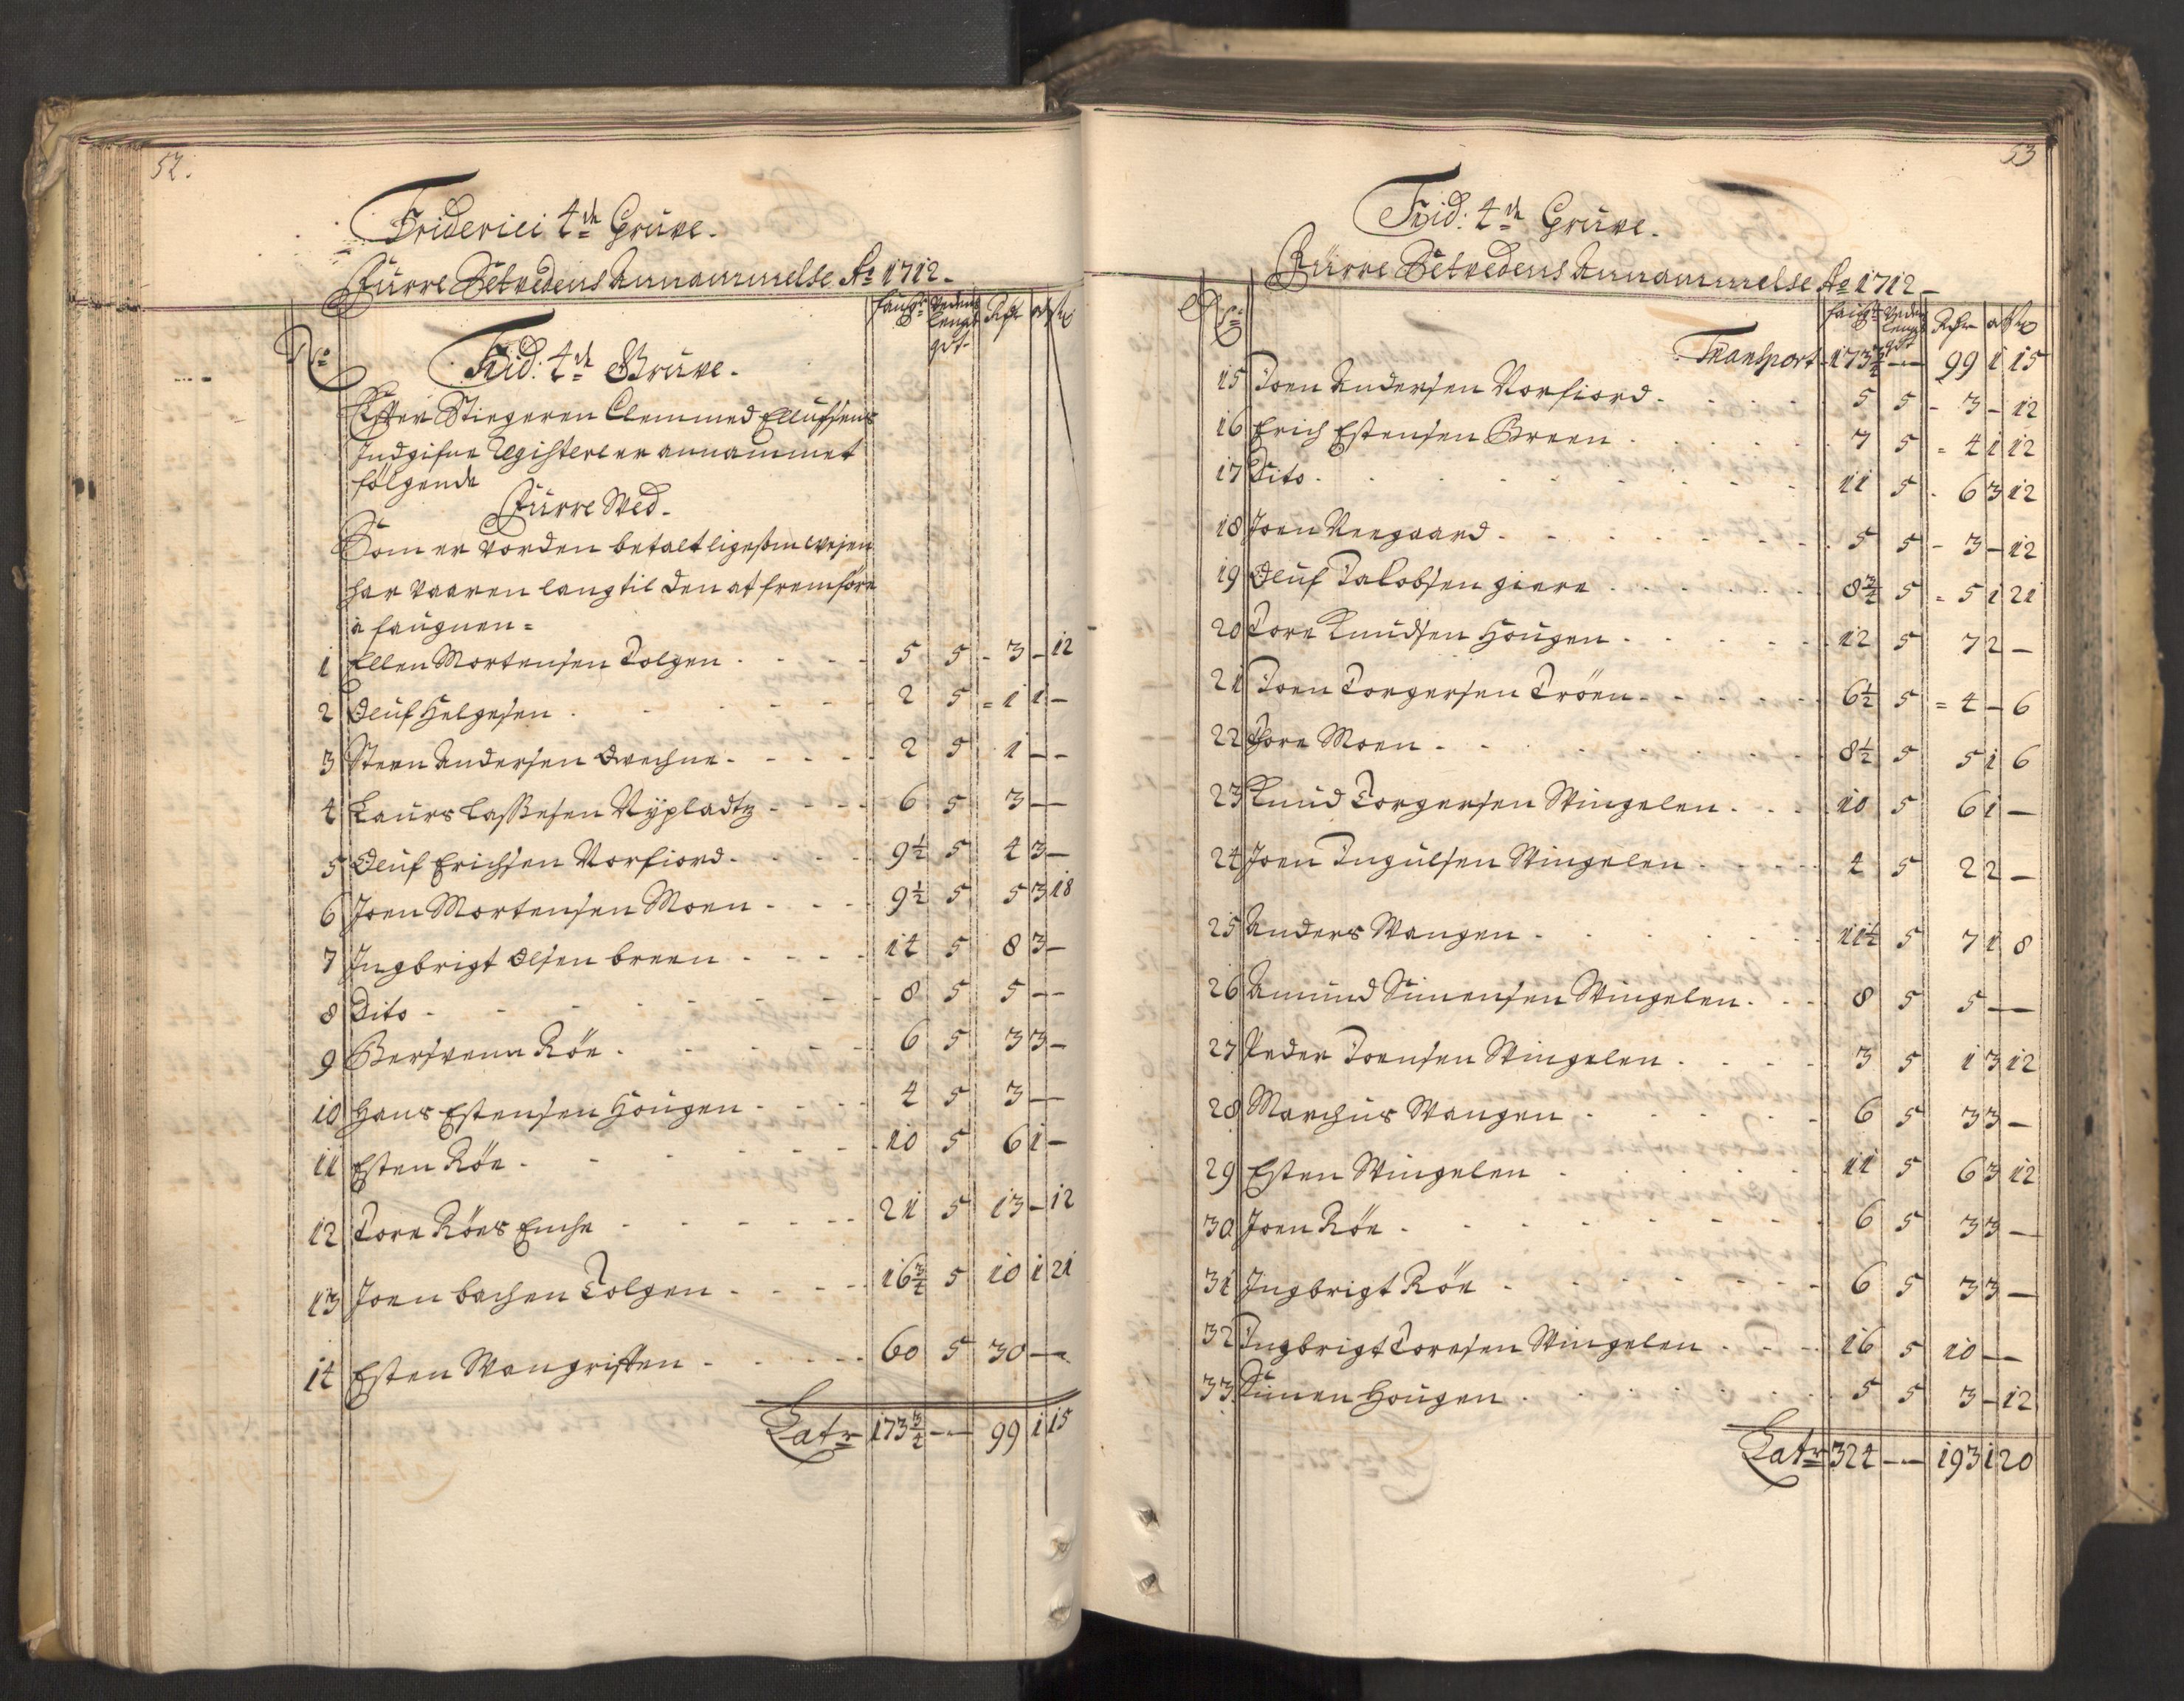 52.
Friderici 4de Gruve.
Furre Setvedens Annammelse Ao 1712.
No
faugr Vedens lengd qvt Rdr ort s
Frid: 4de Gruve.
Efter Stigeren Clemmed Ellufsens
Indgifne Registere er annammet
følgende
Furre Wed.
Som er vorden betalt ligesom Wejen
har vaaren lang til den at fremføre
a faugnen =
1 Ellen Mortensen Tolgen 5 5 - 3 - 12
2 Oluf Helgesen 2 5 = 1 1 -
3 Steen Andersen 2 5 1 - -
4 Laurs Lassesen Nÿpladtz 6 5 3 - -
5 Oluf Erichsen Norfiord 9½ 5 4 3 -
6 Joen Mortensen Moen 9½ 5 5 3 18
7 Ingbrigt Olsen breen 14 5 8 3 -
8 Dito 8 5 5 - -
9 Bersvenn Röe 6 5 3 3 -
10 Hans Estensen Hougen 4 5 3 - -
11 Esten Röe 10 5 6 1 -
12 Tore Röes Enche 21 5 13 - 12
13 Joen bachen Tolgen 16¾ 5 10 1 21
14 Esten Wangrösten 60 5 30 - -
Latr 173¾ - - 99 1 15
53
Frid: 4de Gruve.
Furre Setvedens Annammelse Ao 1712
No
faugr Vedens lengd qvt Rdr ort s
Transport 173¾ - - 99 1 15
15 Joen Andersen Norfiord 5 5 - 3 - 12
16 Erich Estensen Breen 7 5 = 4 1 12
17 Dito 11 5 - 6 3 12
18 Joen Neegaard 5 5 - 3 - 12
19 Oluf Jacobsen giere 8¾ 5 = 5 1 21
20 Tore Knudsen Hougen 12 5 7 2 -
21 Joen Torgersen Tröen 6½ 5 = 4 - 6
22 Tore Moen 8½ 5 5 1 6
23 Knud Torgersen Wingelen 10 5 6 1 -
24 Joen Ingulsen Wingelen 4 5 2 2 -
25 Anders Wangen 11½ 5 7 1 8
26 Amund Simensen Wingelen 8 5 5 - -
27 Peder Joensen Wingelen 3 5 1 3 12
28 Marchus Wangen 6 5 3 3 -
29 Esten Wingelen 11 5 6 3 12
30 Joen Röe 6 5 3 3 -
31 Ingbrigt Röe 6 5 3 3 -
32 Ingbrigt Toresen Wingelen 16 5 10 - -
33 Simen Hougen 5 5 3 - 12
Latr 324 - - 193 1 20